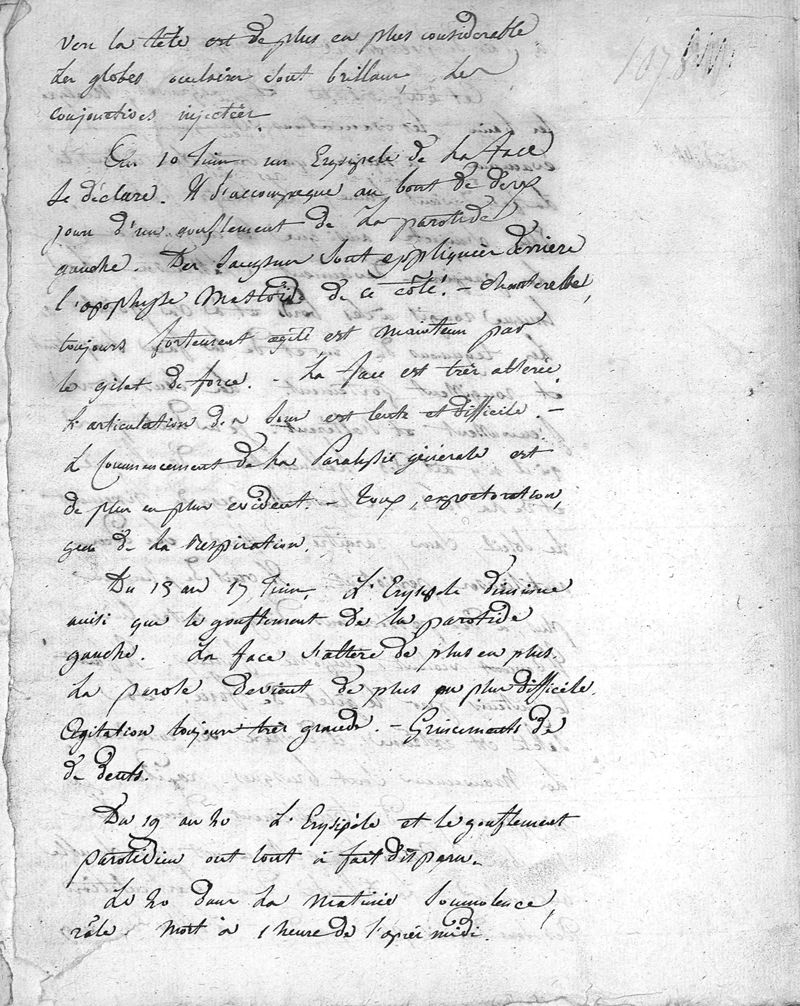 vers la tête est de plus en plus considérable
Les globes oculaires sont brillans, les
conjonctives injectées.
Au 10 Juin un Erysipele de la face
se déclare. Il s'accompagne au bout de deux
jours d'un gonflement de la parotide
gauche. Des sangsues sont appliquées derrière
l'apophyse Mastoïde de ce côté. —
toujours fortement agité est maintenu par
le gilet de force. — La face est très alterée
L'articulation des sons est lente et difficile. —
Le Commencement de la Paralysie générale est
de plus en plus évident. — Toux, expectoration,
gêne de la respiration.
Du 15 au 17 Juin L'Erysipele diminue
ainsi que le gonflement de la parotide
gauche. La face s'altère de plus en plus.
La parole devient de plus en plus difficile.
Agitation toujours très grande. — Grincements de
de dents.
Du 19 au 20 L'Erysipèle et le gonflement
parotidien ont tout à fait disparu.
Le 20 dans la matinée Somnolence,
râle. Mort à 1 heure de l'après midi.